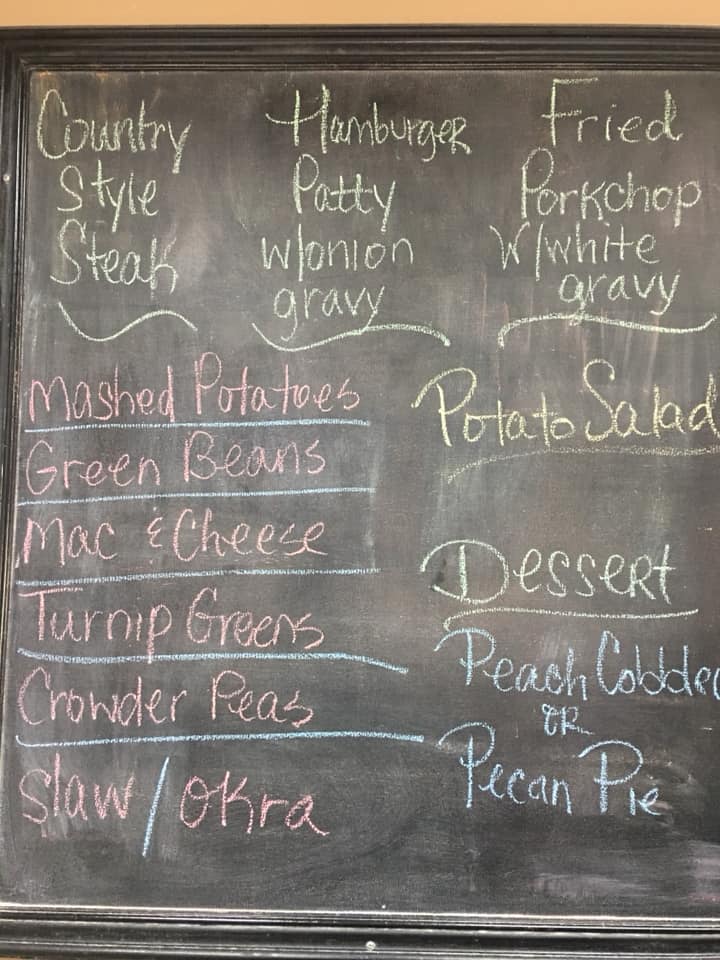 Country
Style
Steak
Hamburger
Patty
w/onion
gravy
Fried
Porkchop
w/white
gravy
Mashed Potatoes
Green Beans
Mac & Cheese
Turnip Greens
Crowder Peas
Slaw / Okra
Potato Salad
Dessert
Peach Cobbler
OR
Pecan Pie